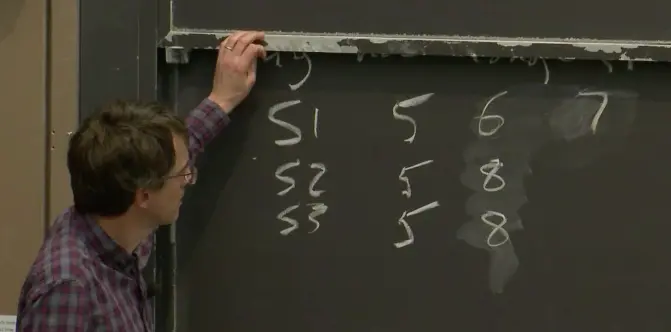 S1 5 6 7
S2 5 8
S3 5 8